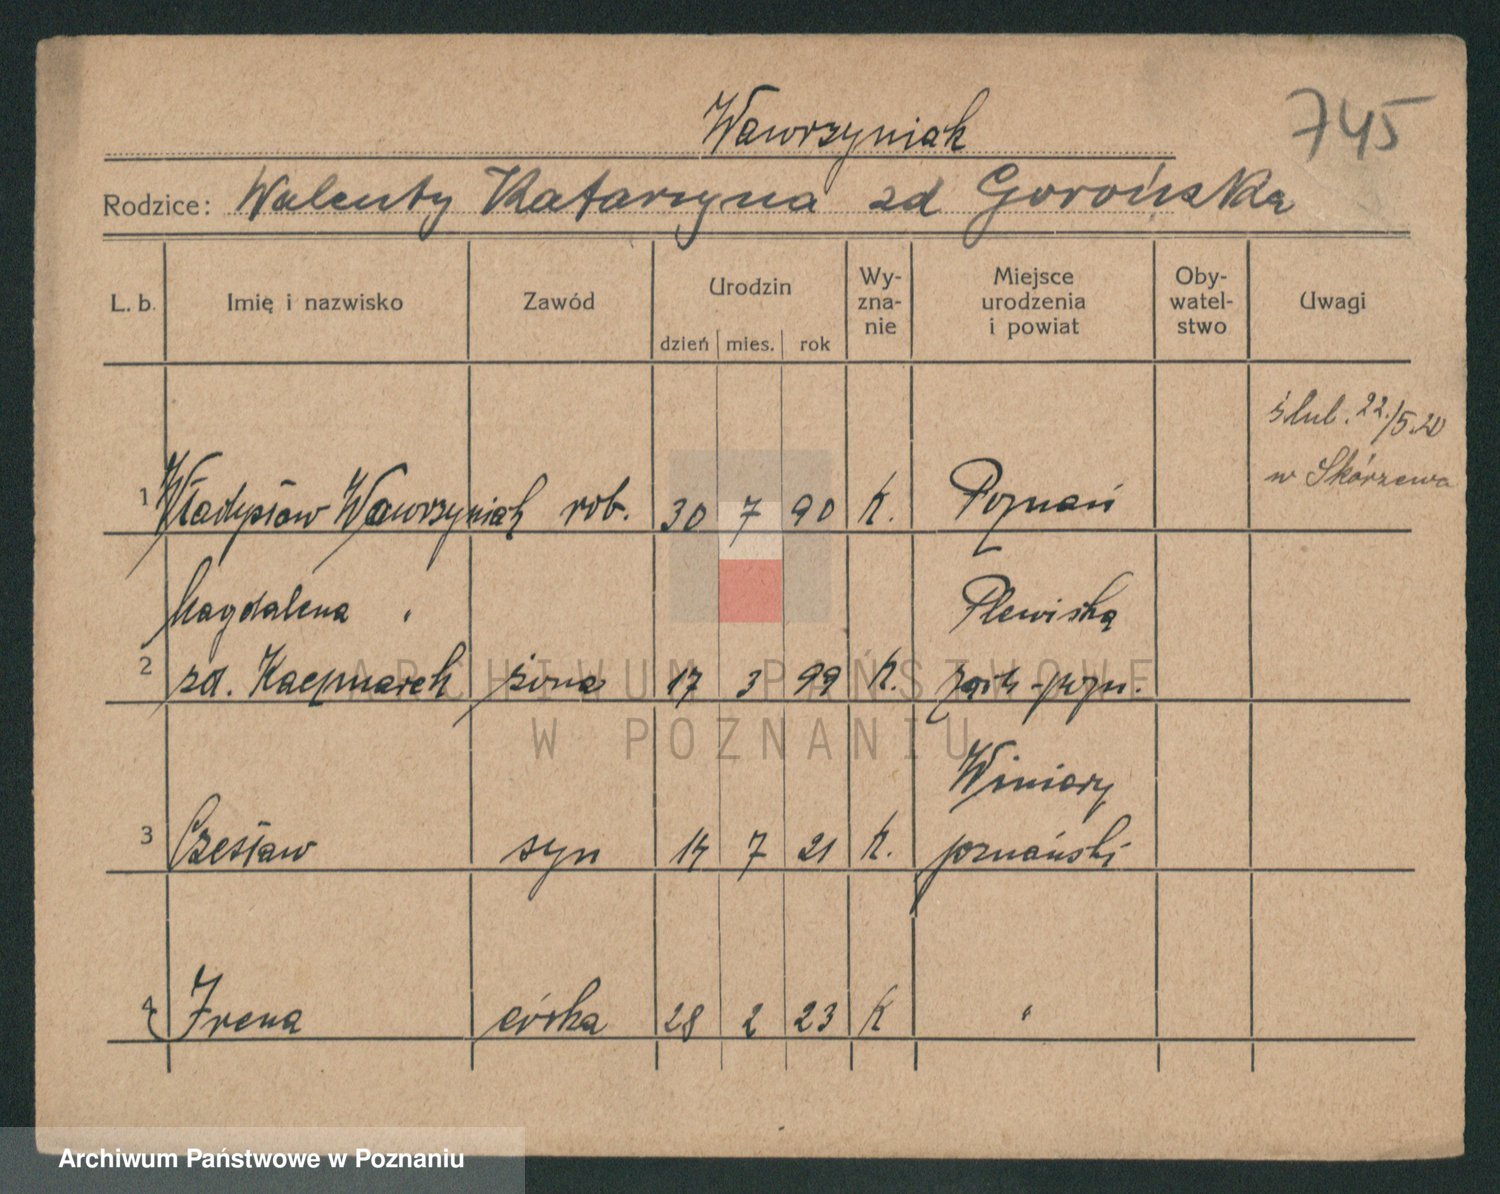 745
Wawrzyniak
Rodzice: Walenty Katarzyna zd Gorońska
L. b. Imię i nazwisko Zawód Urodzin Wy-zna-nie Miejsce urodzenia i powiat Oby-watel-stwo Uwagi
dzień mies. rok
ślub. 22./5.20
w Skórzewo
1 Władysław Wawrzyniak rob. 30 7 90 k. Poznań
Magdalena " Plewiska
2 zd. Kaczmarek żona 17 3 99 k. zach-pozn.
Winiary
3 Czesław syn 14 7 21 k. poznański
4 Irena córka 28 2 23 k "
ARCHIWUM PAŃSTWOWE
W POZNANIU
Archiwum Państwowe w Poznaniu